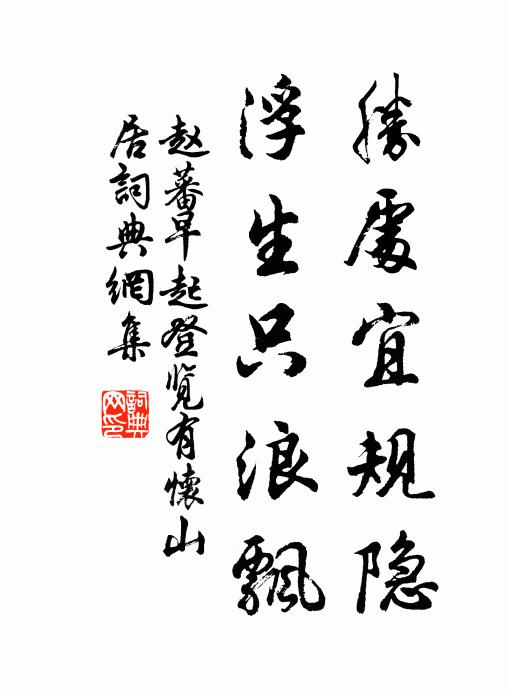 勝處宜規隐
浮生只浪飄
赵蕃早起登览有懷山
居詞典網集
詞典
网印